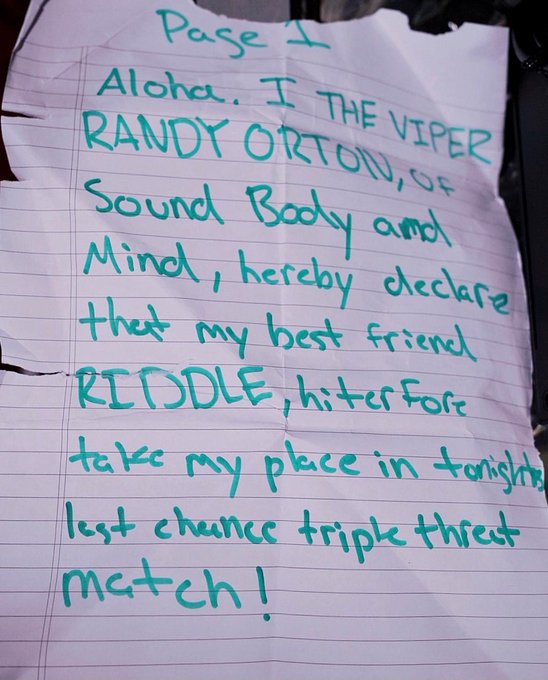 Page 1
Aloha. I THE VIPER
RANDY ORTON, OF
Sound Body and
Mind, hereby declare
that my best friend
RIDDLE, hiterfore
take my place in tonights
last chance triple threat
match!